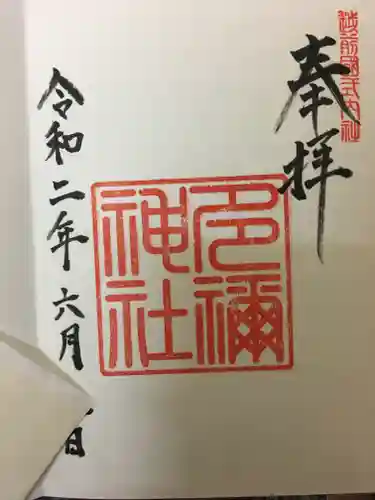 越前國式内社
奉拝
禰
神社
令和二年六月 日